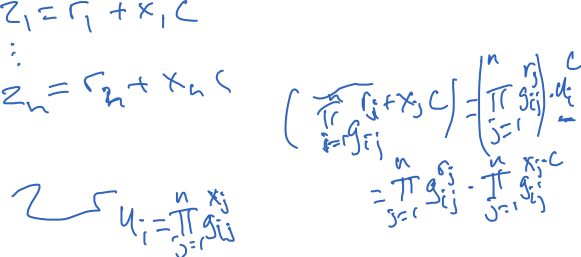 z₁ = r₁ + x₁ c
⋮
zₙ = rₙ + xₙ c
( ∏ⱼ₌₁ⁿ gᵢⱼ^(rⱼ + xⱼ c) ) = ( ∏ⱼ₌₁ⁿ gᵢⱼ^(rⱼ) ) · uᵢ^c
= ∏ⱼ₌₁ⁿ gᵢⱼ^(rⱼ) · ∏ⱼ₌₁ⁿ gᵢⱼ^(xⱼ·c)
uᵢ = ∏ⱼ₌₁ⁿ gᵢⱼ^(xⱼ)